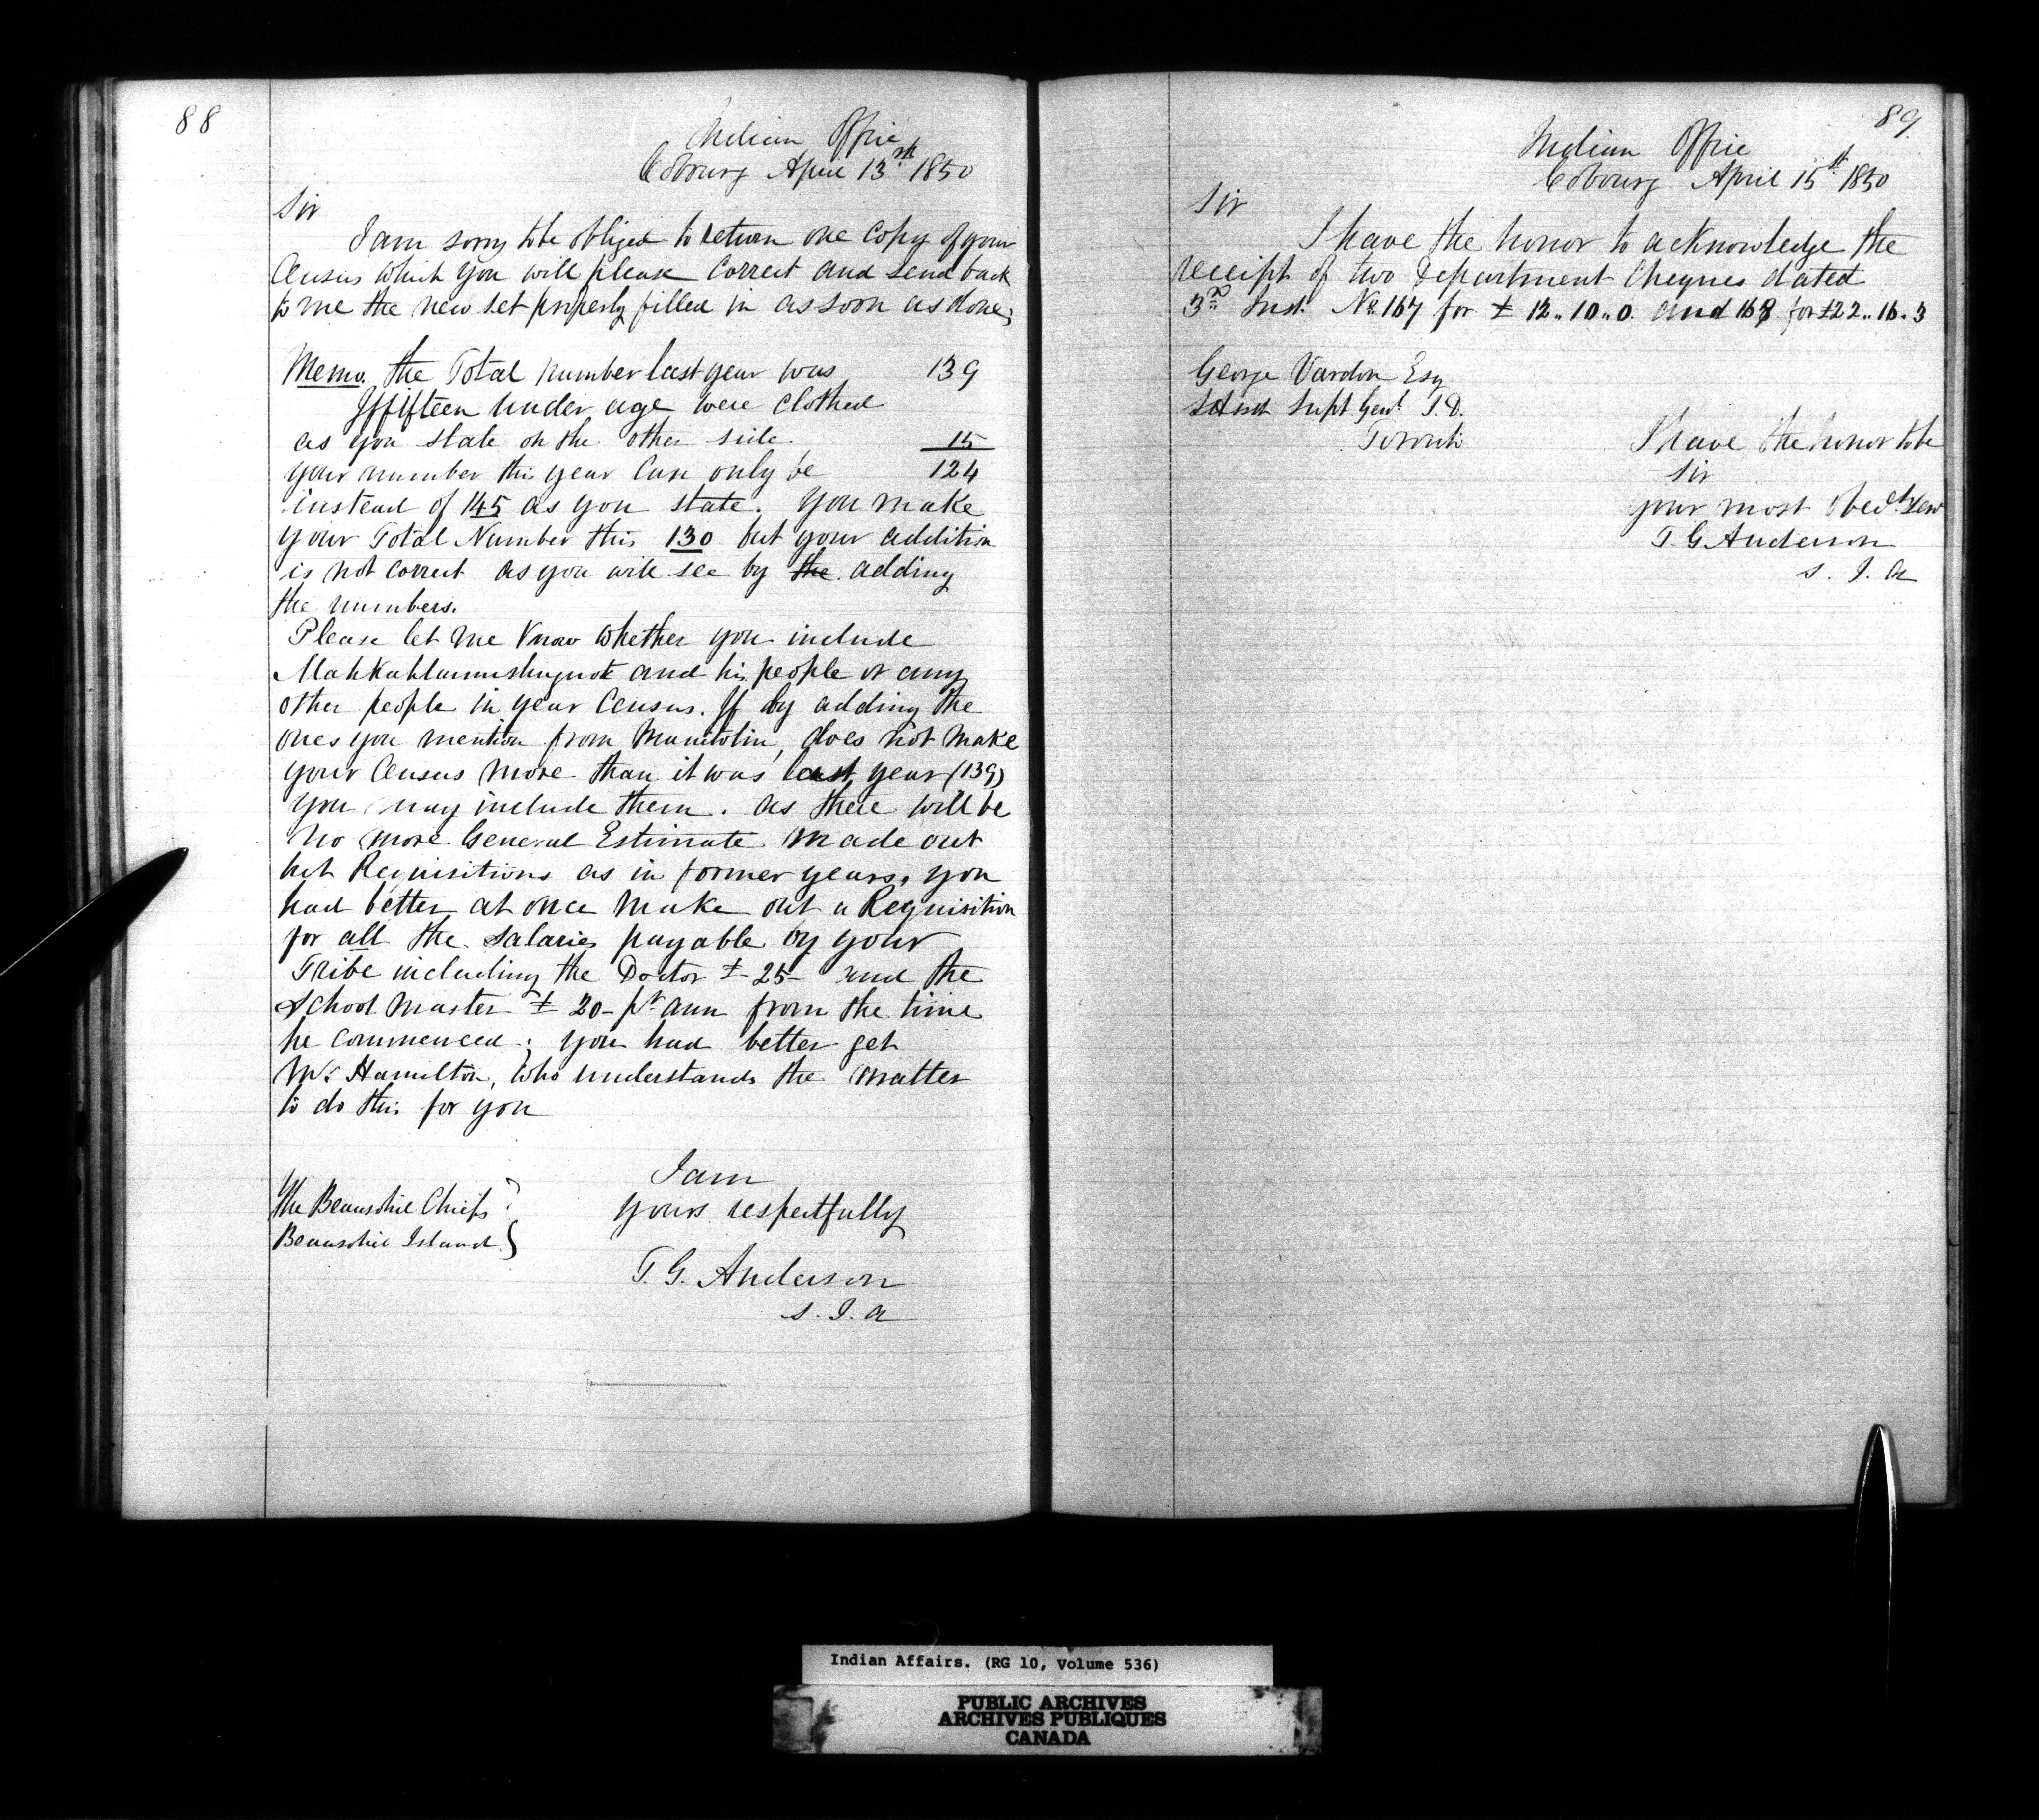 88
Indian Office
Cobourg April 13th 1850
Sir
I am sorry to be obliged to return one Copy of your
Census which you will please Correct and send back
to me the new set properly filled in as soon as done;
Memo. the Total number last year was 139
If fifteen under age were Clothed
as you state on the other side. 15
your number this year Can only be 124
instead of 145 as you state. You make
your Total Number this 130 but your addition
is not correct as you will see by the adding
the numbers.
Please let me know whether you include
and his people or any
other people in your Census. If by adding the
ones you mention from Manitolin, does not make
your Census more than it was last year (139)
you may include them. as there will be
no more General Estimate made out
but Requisitions as in former years, you
had better at once make out a Requisition
for all the Salaries payable by your
Tribe including the Doctor £ 25- and the
School Master £ 20- pr ann from the time
he commenced; you had better get
Mr. Hamilton, who understands the matter
to do this for you
I am
yours respectfully
T. G. Anderson
S. I. A
The Beausolie Chiefs
Beausolie Island
89
Indian Office
Cobourg April 15th 1850
Sir
I have the honor to acknowledge the
receipt of two Department Cheques dated
3rd Inst. No. 167 for £ 12..10..0. and 168 for £22..16.3
George Vardon Esq
Asst Supt. Genl. I.D.
Toronto
I have the honor to be
Sir
your most Obedt. Serv
T. G Anderson
S. I. A
Indian Affairs. (RG 10, Volume 536)
PUBLIC ARCHIVES
ARCHIVES PUBLIQUES
CANADA